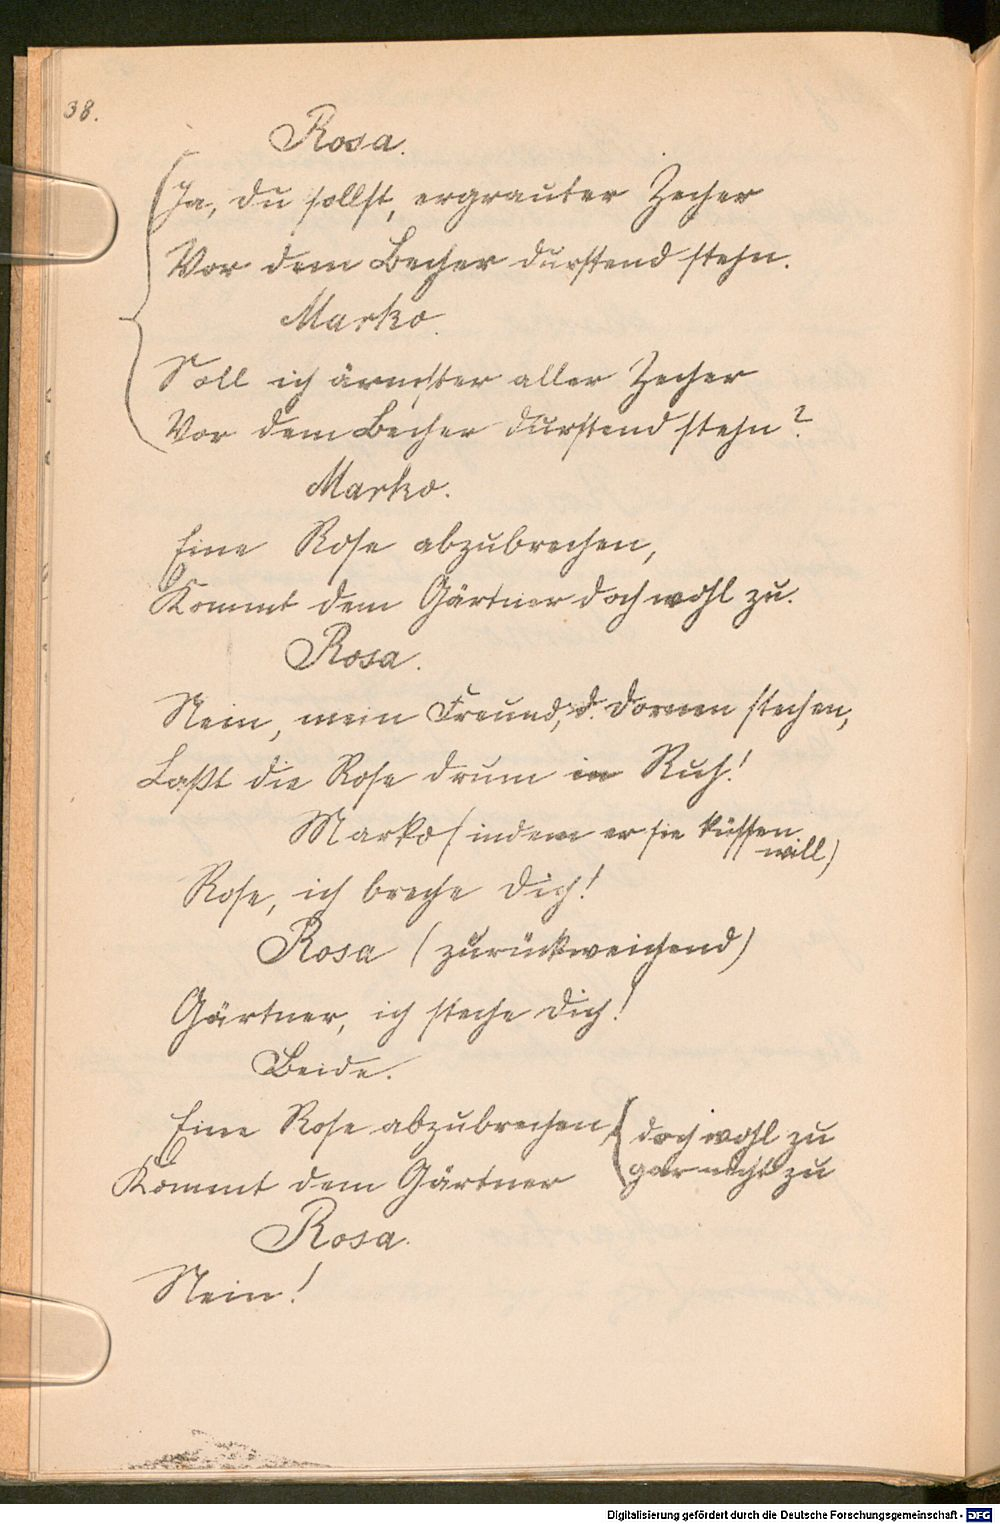 38.
Rosa.
Ja, du sollst, ergrauter Zecher
Vor dem Becher durstend stehn.
Marko.
Soll ich ärmster aller Zecher
Vor dem Becher durstend stehn?
Marko.
Eine Rose abzubrechen,
Kommt dem Gärtner doch wohl zu.
Rosa.
Nein, mein Freund, d. Dornen stechen,
Laßt die Rose drum in Ruh!
Marko (indem er sie küssen
will)
Rose, ich breche dich!
Rosa (zurückweichend)
Gärtner, ich steche dich!
Beide.
Eine Rose abzubrechen
Kommt dem Gärtner { doch wohl zu
gar nicht zu
Rosa.
Nein!
Digitalisierung gefördert durch die Deutsche Forschungsgemeinschaft - DFG